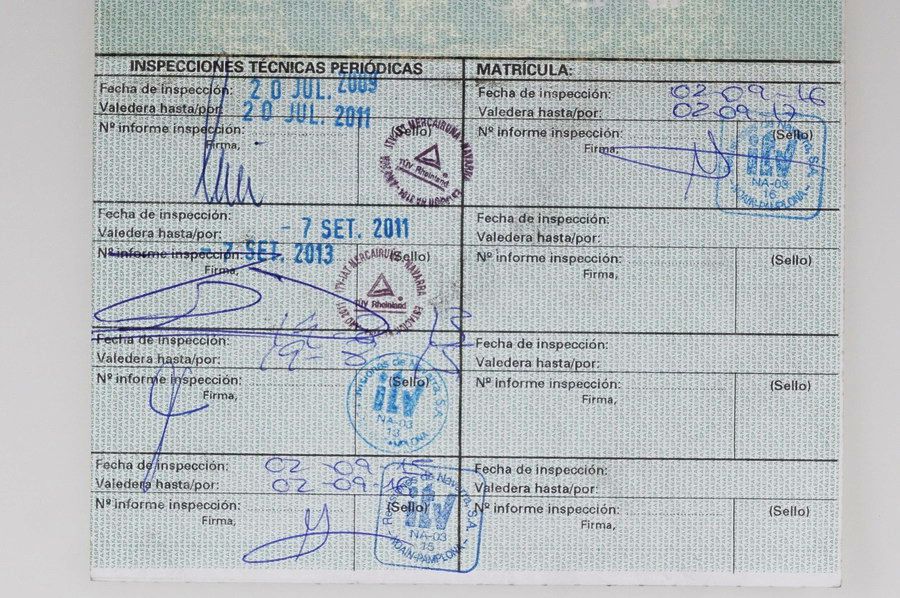 INSPECCIONES TÉCNICAS PERIÓDICAS
Fecha de inspección: 20 JUL. 2009
Valedera hasta/por: 20 JUL. 2011
Nº informe inspección:
(Sello)
Firma,
ITV-IAT MERCAIRUÑA NAVARRA
TÜV Rheinland
Fecha de inspección: - 7 SET. 2011
Valedera hasta/por: - 7 SET. 2013
Nº informe inspección:
(Sello)
Firma,
ITV-IAT MERCAIRUÑA NAVARRA
TÜV Rheinland
Fecha de inspección:
Valedera hasta/por:
Nº informe inspección:
(Sello)
Firma,
de Navarra, S.A.
itv
NA-03
13
PAMPLONA
Fecha de inspección: 02-09-15
Valedera hasta/por: 02-09-16
Nº informe inspección:
(Sello)
Firma,
de Navarra, S.A.
itv
NA-03
15
NOAIN-PAMPLONA
MATRÍCULA:
Fecha de inspección: 02-09-16
Valedera hasta/por: 02-09-17
Nº informe inspección:
(Sello)
Firma,
itv
NA-03
16
NOAIN-PAMPLONA
Fecha de inspección:
Valedera hasta/por:
Nº informe inspección:
(Sello)
Firma,
Fecha de inspección:
Valedera hasta/por:
Nº informe inspección:
(Sello)
Firma,
Fecha de inspección:
Valedera hasta/por:
Nº informe inspección:
(Sello)
Firma,